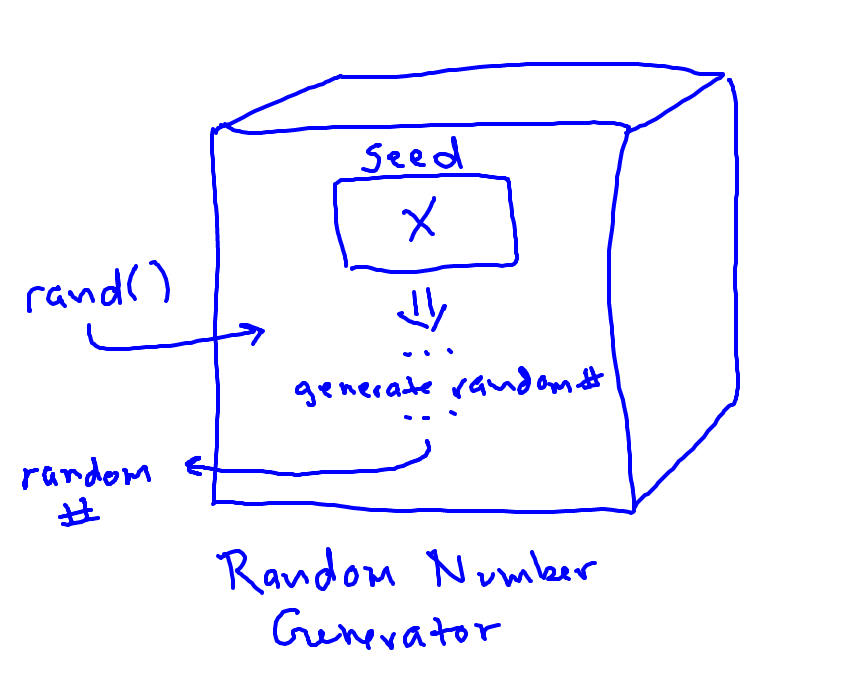 seed
X
rand()
...
generate random #
...
random
#
Random Number
Generator